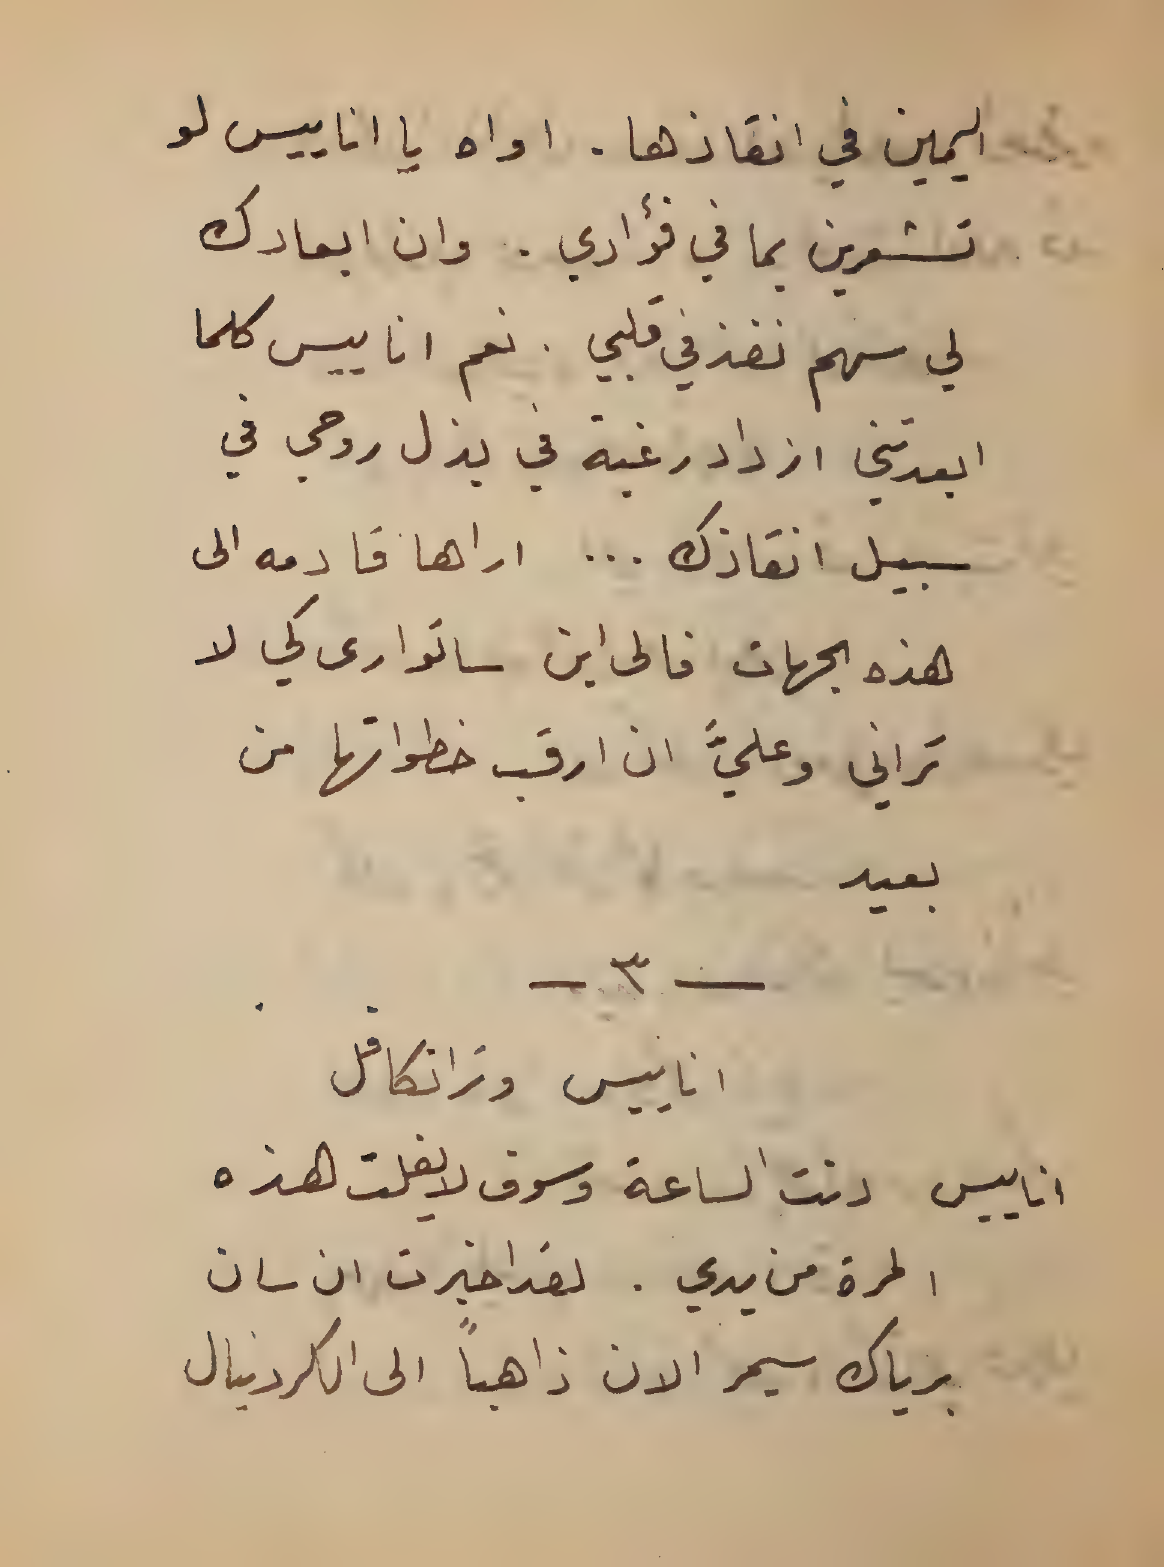 اليمين في انقاذها . اواه يا اناييس لو
تشعرين بما في فؤادي . وان ابعادك
لي سهم نفذ في قلبي . نعم اناييس كلما
ابعدتني ازداد رغبة في بذل روحي في
سبيل انقاذك ... اراها قادمه الى
هذه الجهات فالى اين ساتوارى كي لا
تراني وعليَّ ان ارقب خطواتها من
بعيد
— ٣ —
اناييس وترانكافل
اناييس دنت الساعة وسوف لا يفلت هذه
المرة من يدي . لقد اخبرت ان سان
برياك سيمر الان ذاهباً الى الكردينال